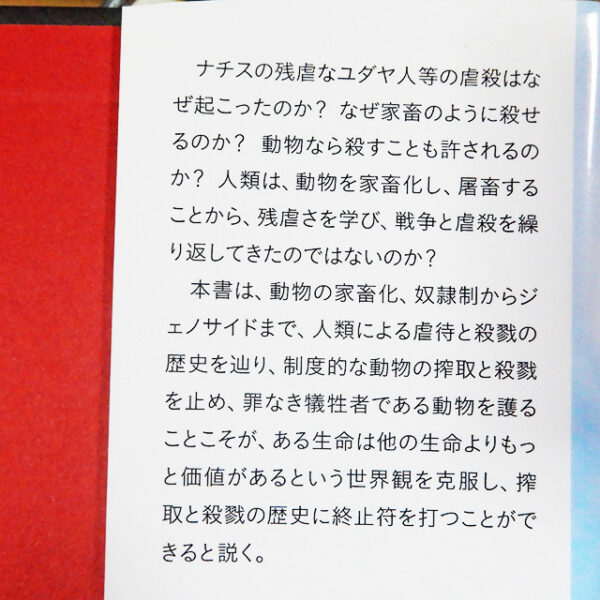 ナチスの残虐なユダヤ人等の虐殺はな
ぜ起こったのか？ なぜ家畜のように殺せ
るのか？ 動物なら殺すことも許されるの
か？ 人類は、動物を家畜化し、屠畜する
ことから、残虐さを学び、戦争と虐殺を繰
り返してきたのではないのか？
本書は、動物の家畜化、奴隷制からジ
ェノサイドまで、人類による虐待と殺戮の
歴史を辿り、制度的な動物の搾取と殺戮
を止め、罪なき犠牲者である動物を護る
ことこそが、ある生命は他の生命よりもっ
と価値があるという世界観を克服し、搾
取と殺戮の歴史に終止符を打つことがで
きると説く。